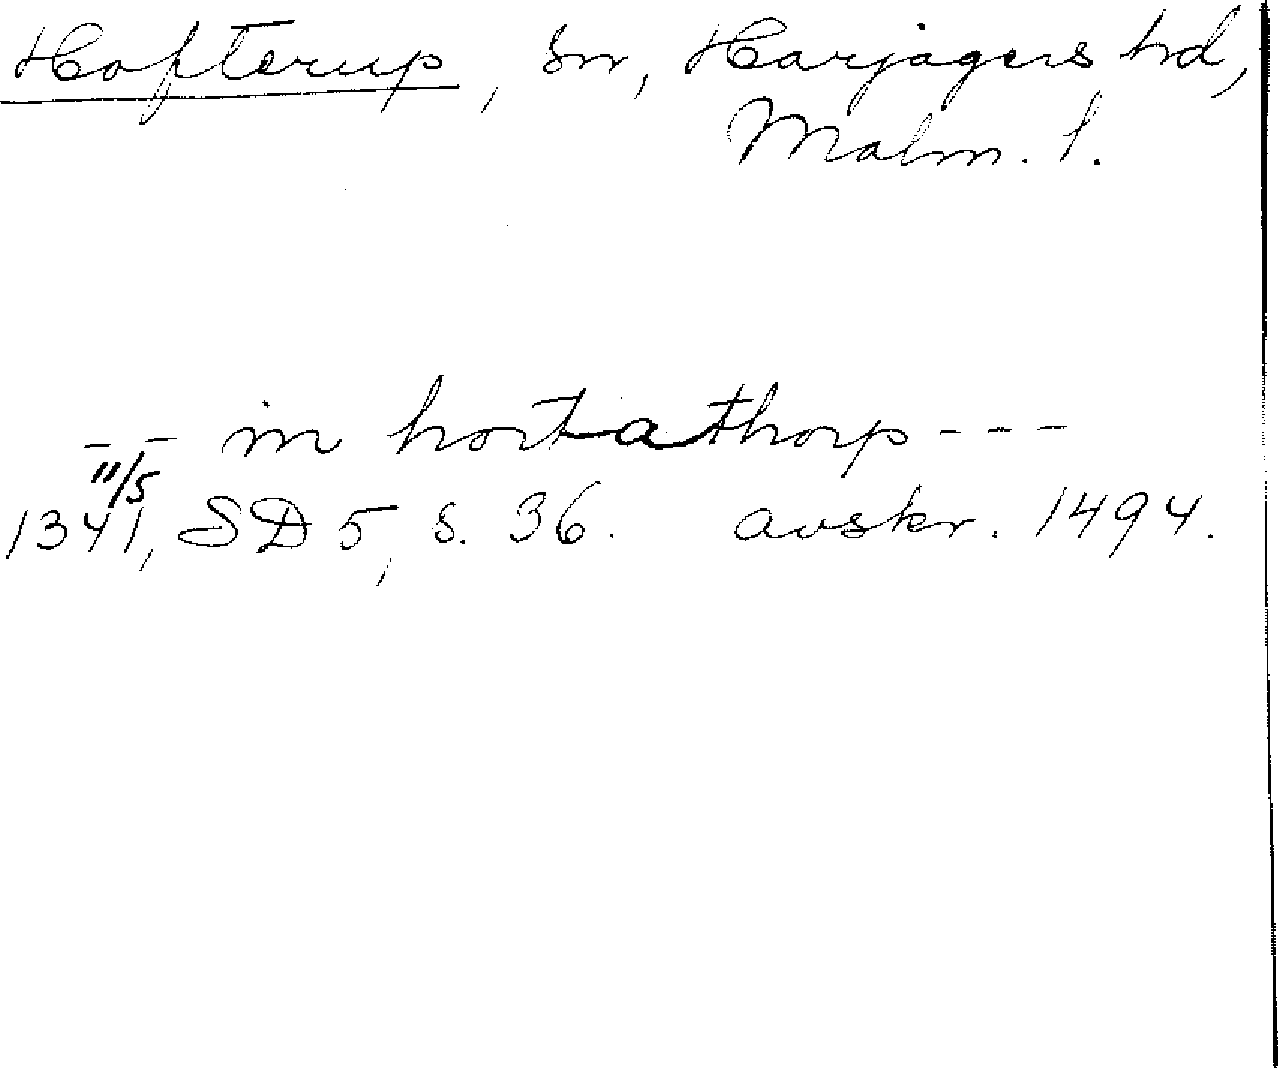 Hofterup, sn, Harjagers hd,
Malm. l.
-- in hortathorp ---
11/5
1341, SD 5, s. 36. avskr. 1494.